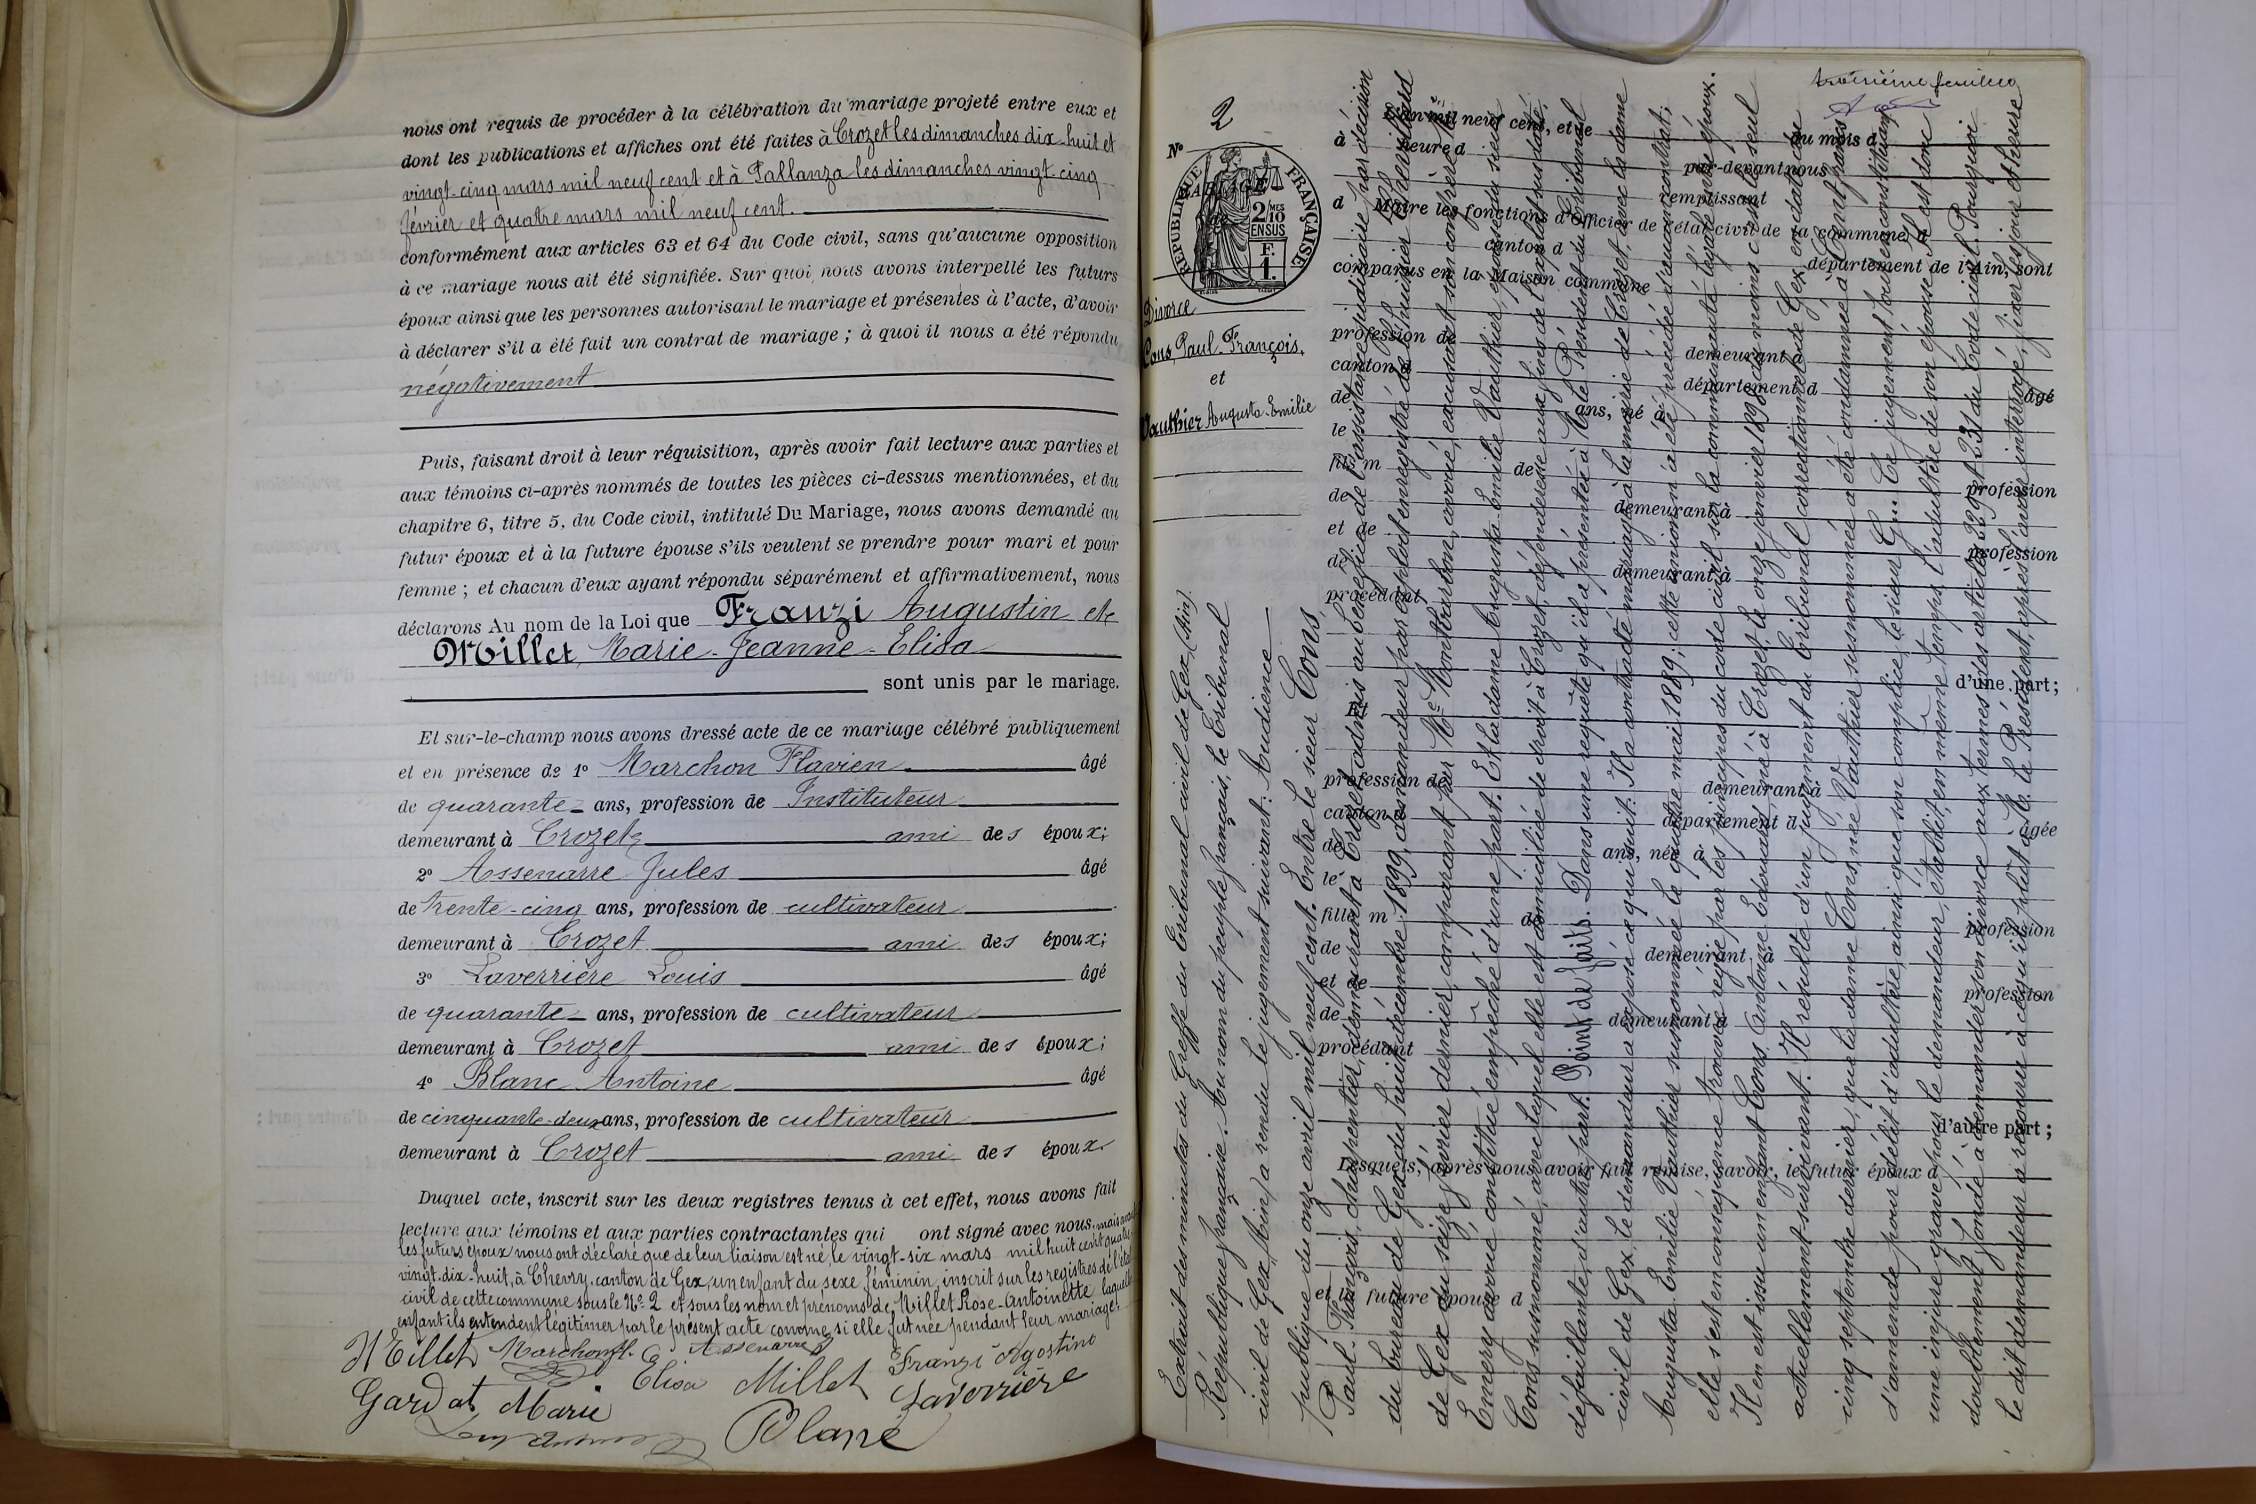 nous ont requis de procéder à la célébration du mariage projeté entre eux et
dont les publications et affiches ont été faites à Crozet les dimanches dix-huit et
vingt-cinq mars mil neuf cent et à Pallanza les dimanches vingt-cinq
février et quatre mars mil neuf cent.
conformément aux articles 63 et 64 du Code civil, sans qu'aucune opposition
à ce mariage nous ait été signifiée. Sur quoi nous avons interpellé les futurs
époux ainsi que les personnes autorisant le mariage et présentes à l'acte, d'avoir
à déclarer s'il a été fait un contrat de mariage ; à quoi il nous a été répondu
négativement
Puis, faisant droit à leur réquisition, après avoir fait lecture aux parties et
aux témoins ci-après nommés de toutes les pièces ci-dessus mentionnées, et du
chapitre 6, titre 5, du Code civil, intitulé Du Mariage, nous avons demandé au
futur époux et à la future épouse s'ils veulent se prendre pour mari et pour
femme ; et chacun d'eux ayant répondu séparément et affirmativement, nous
déclarons Au nom de la Loi que Franzi Augustin et
Millet, Marie-Jeanne-Elisa
sont unis par le mariage.
Et sur-le-champ nous avons dressé acte de ce mariage célébré publiquement
et en présence de 1° Marchon Flavien âgé
de quarante ans, profession de Instituteur
demeurant à Crozet ami des époux;
2° Assenarre Jules âgé
de trente-cinq ans, profession de cultivateur
demeurant à Crozet ami des époux;
3° Laverrière Louis âgé
de quarante ans, profession de cultivateur
demeurant à Crozet ami des époux;
4° Blanc Antoine âgé
de cinquante-deux ans, profession de cultivateur
demeurant à Crozet ami des époux
Duquel acte, inscrit sur les deux registres tenus à cet effet, nous avons fait
lecture aux témoins et aux parties contractantes qui ont signé avec nous. mais
les futurs époux nous ont déclaré que de leur liaison est né, le vingt-six mars mil huit cent quatre-
vingt-dix-huit, à Chevry, canton de Gex, un enfant du sexe féminin, inscrit sur les registres de l'état
civil de cette commune sous le N° 2 et sous les nom et prénoms de Millet Rose-Antoinette laquelle
enfant ils entendent légitimer par le présent acte comme si elle fut née pendant leur mariage.
Millet Marchon fl. Assenarre J Franzi Agostino
Elisa Millet Laverrière
Gardat Marie Blanc
troisième feuillet
N° 2
MARIAGE
de
RÉPUBLIQUE FRANÇAISE
2/10 MES
EN SUS
F.
1.
Divorce
Cons Paul-François,
et
Vauthier Augusta-Emilie
L'an mil neuf cent, et le du mois d
à heure d par-devant nous
d Maire remplissant
les fonctions d'Officier de l'état civil de la commune d
canton d département de l'Ain, sont
comparus en la Maison commune
profession de demeurant à
canton d département d âgé
de ans, né à
le
fils m de
de profession
et de demeurant à
de profession
demeurant à
procédant
d'une part ;
Et
profession de demeurant à
canton d département d âgée
de ans, née à
le
fille m de
de profession
et de demeurant à
de profession
demeurant à
procédant
d'autre part ;
Lesquels, après nous avoir fait remise, savoir, le futur époux d
et la future épouse d
Extrait des minutes du Greffe du Tribunal civil de Gex (Ain).
République française. Au nom du peuple français, le Tribunal
civil de Gex, (Ain) a rendu le jugement suivant : Audience
publique du onze avril mil neuf cent. Entre le sieur Cons,
Paul-François, charpentier, demeurant à Crozet, admis au bénéfice de l'assistance judiciaire par décision
du bureau de Gex du huit décembre 1899, demandeur par exploit enregistré de Me huissier
de Gex du seize février dernier, comparant par Me Montbarbon, avoué,
Emery avoué constitué empêché d'une part. Et la dame Augusta-Emilie Vauthier, épouse du sieur
Cons susnommé, avec lequel elle est domiciliée de droit à Crozet, défenderesse aux fins de l'exploit susdaté,
défaillante, d'autre part. Point de faits. Dans une requête qu'il a présentée à M. le Président du Tribunal
civil de Gex, le demandeur a exposé ce qui suit : Il a contracté mariage à la mairie de Crozet, avec la dame
Augusta Emilie Vauthier susnommée le quatre mai 1889 ; cette union n'a été précédée d'aucun contrat ;
elle s'est en conséquence trouvée régie par les principes du code civil sur la communauté légale entre époux.
Il en est issu un enfant Cons Antoine Edouard, né à Crozet, le onze janvier 1890, du moins c'est le seul
actuellement survivant. Il résulte d'un jugement du Tribunal correctionnel de Gex, en date du
cinq septembre dernier, que la dame Cons, née Vauthier susnommée a été condamnée à francs
d'amende pour délit d'adultère, ainsi que son complice, le sieur G... Ce jugement
une injure grave pour le demandeur, établit, en même temps, l'adultère de son épouse. Il est donc
doublement fondé à demander son divorce aux termes des articles 229 et 231 du Code civil. Pourquoi
le dit demandeur a recouru à ce qu'il plût à M. le Président, après l'avoir interrogé, fixer les jour et heure